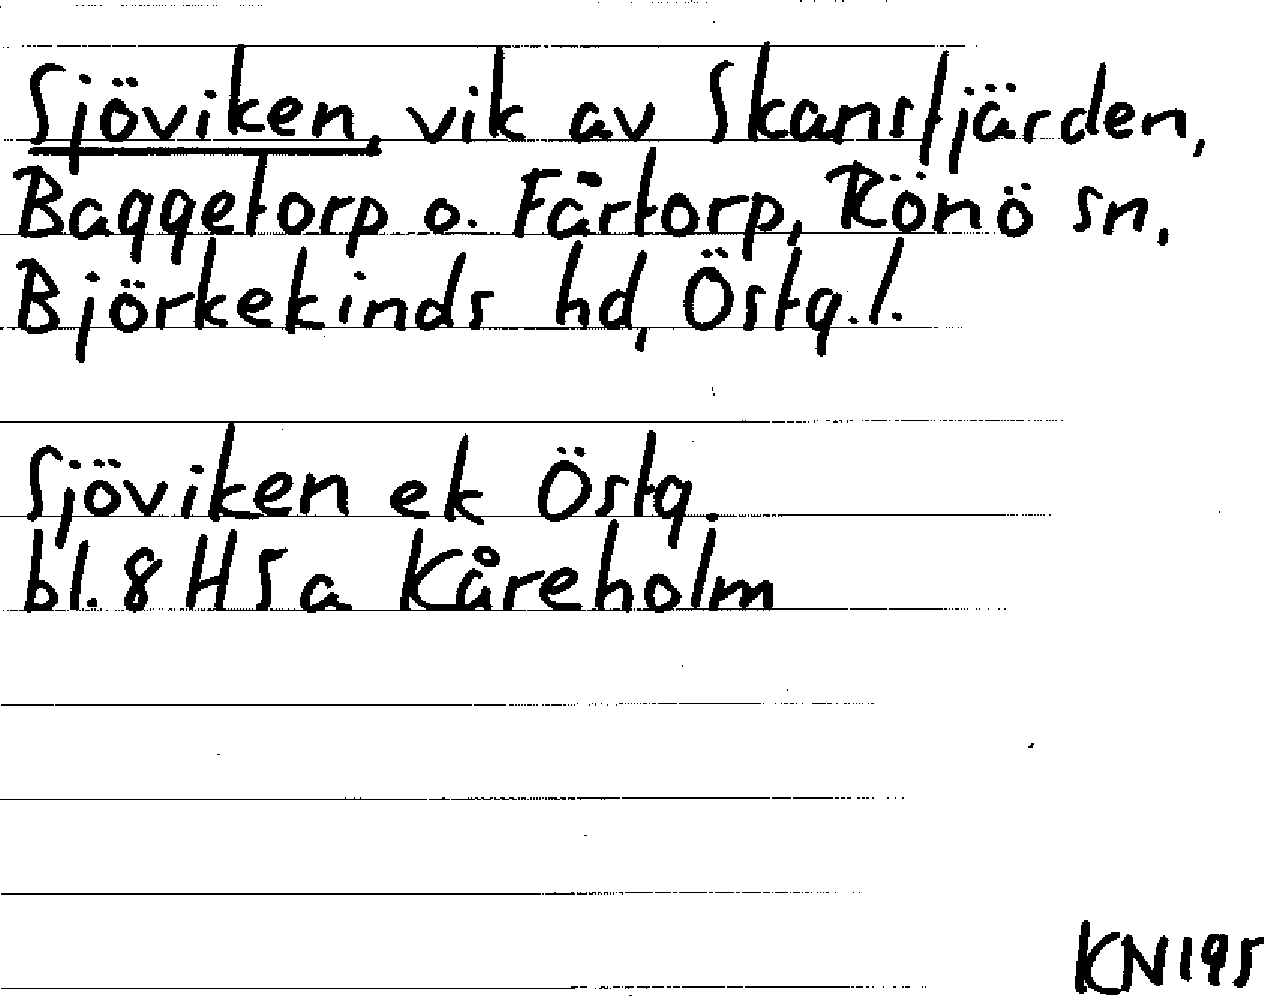 Sjöviken, vik av Skansfjärden,
Baggetorp o. Fårtorp, Rönö sn,
Björkekinds hd, Östg.l.
Sjöviken ek Östg.
bl. 8 H5a Kåreholm
KN195